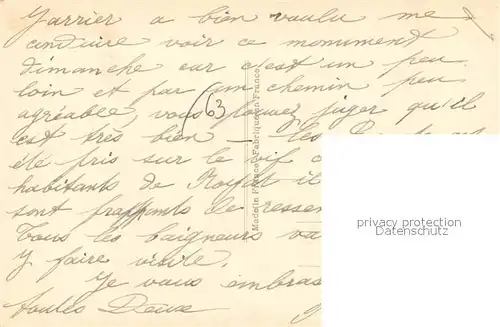 Jarrier a bien voulu me
conduire voir ce monument
dimanche car c'est un peu
loin et par un chemin peu
agréable, vous pouvez juger qu'il
est très bien — les
été pris sur le vif
habitants de Royat il
sont frappants de ressem
Tous les baigneurs va
y faire visite.
Je vous embras
toutes Deux
63
Made in France - Fabriqué en France
privacy protection
Datenschutz